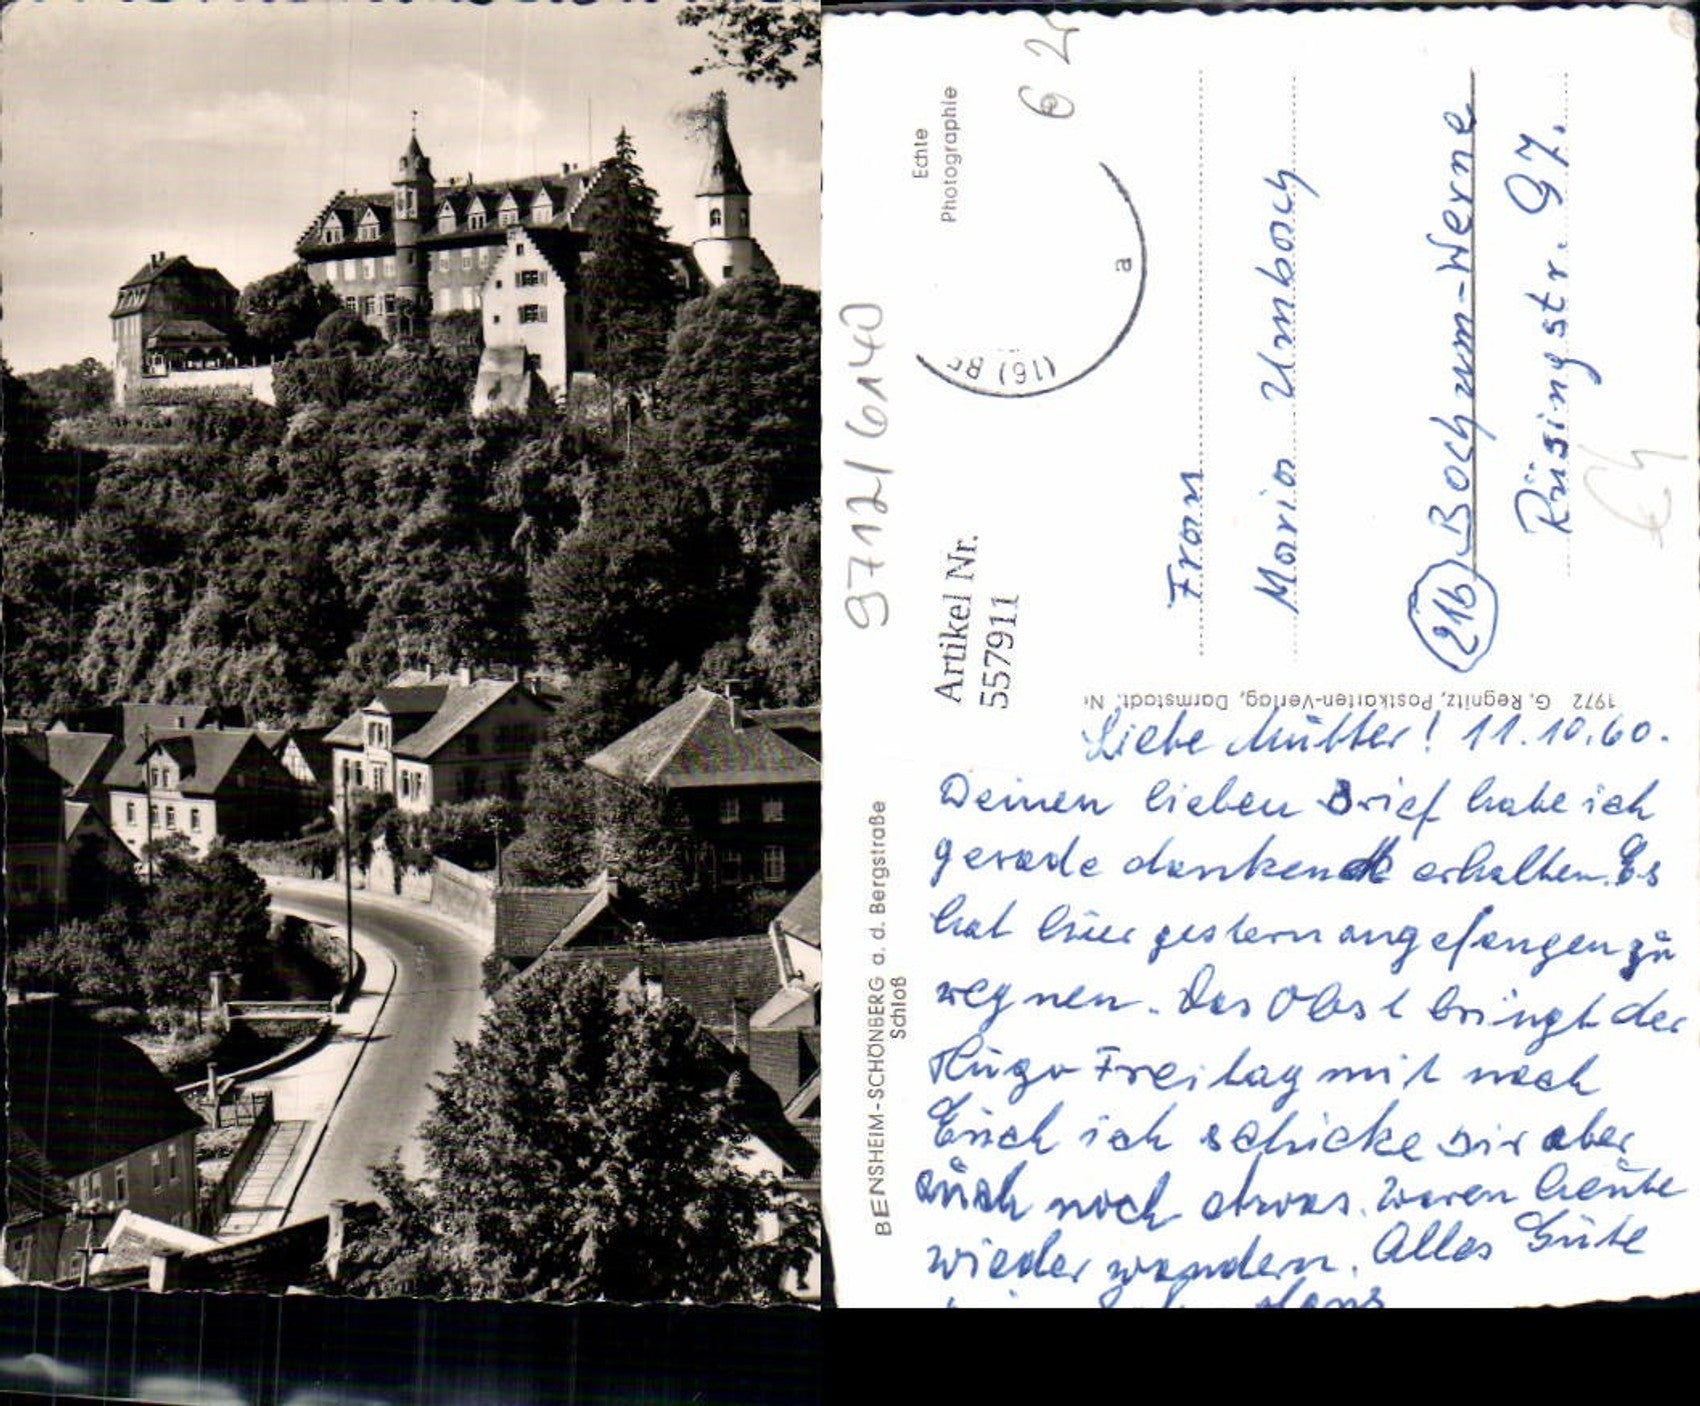 Echte
Photographie
62
a
97121 6140
Artikel Nr.
557911
BENSHEIM-SCHÖNBERG a. d. Bergstraße
Schloß
1972 G. Regnitz, Postkarten-Verlag, Darmstadt.
Frau
Maria Umbach
21b Bochum-Werne
Rüsingstr. 97.
Liebe Mutter! 11.10.60.
Deinen lieben Brief habe ich
gerade dankend erhalten. Es
hat hier gestern angefangen zu
regnen. Das Obst bringt der
Hugo Freitag mit nach
Euch ich schicke Dir aber
auch noch etwas. Waren heute
wieder wandern. Alles Gute
Hans